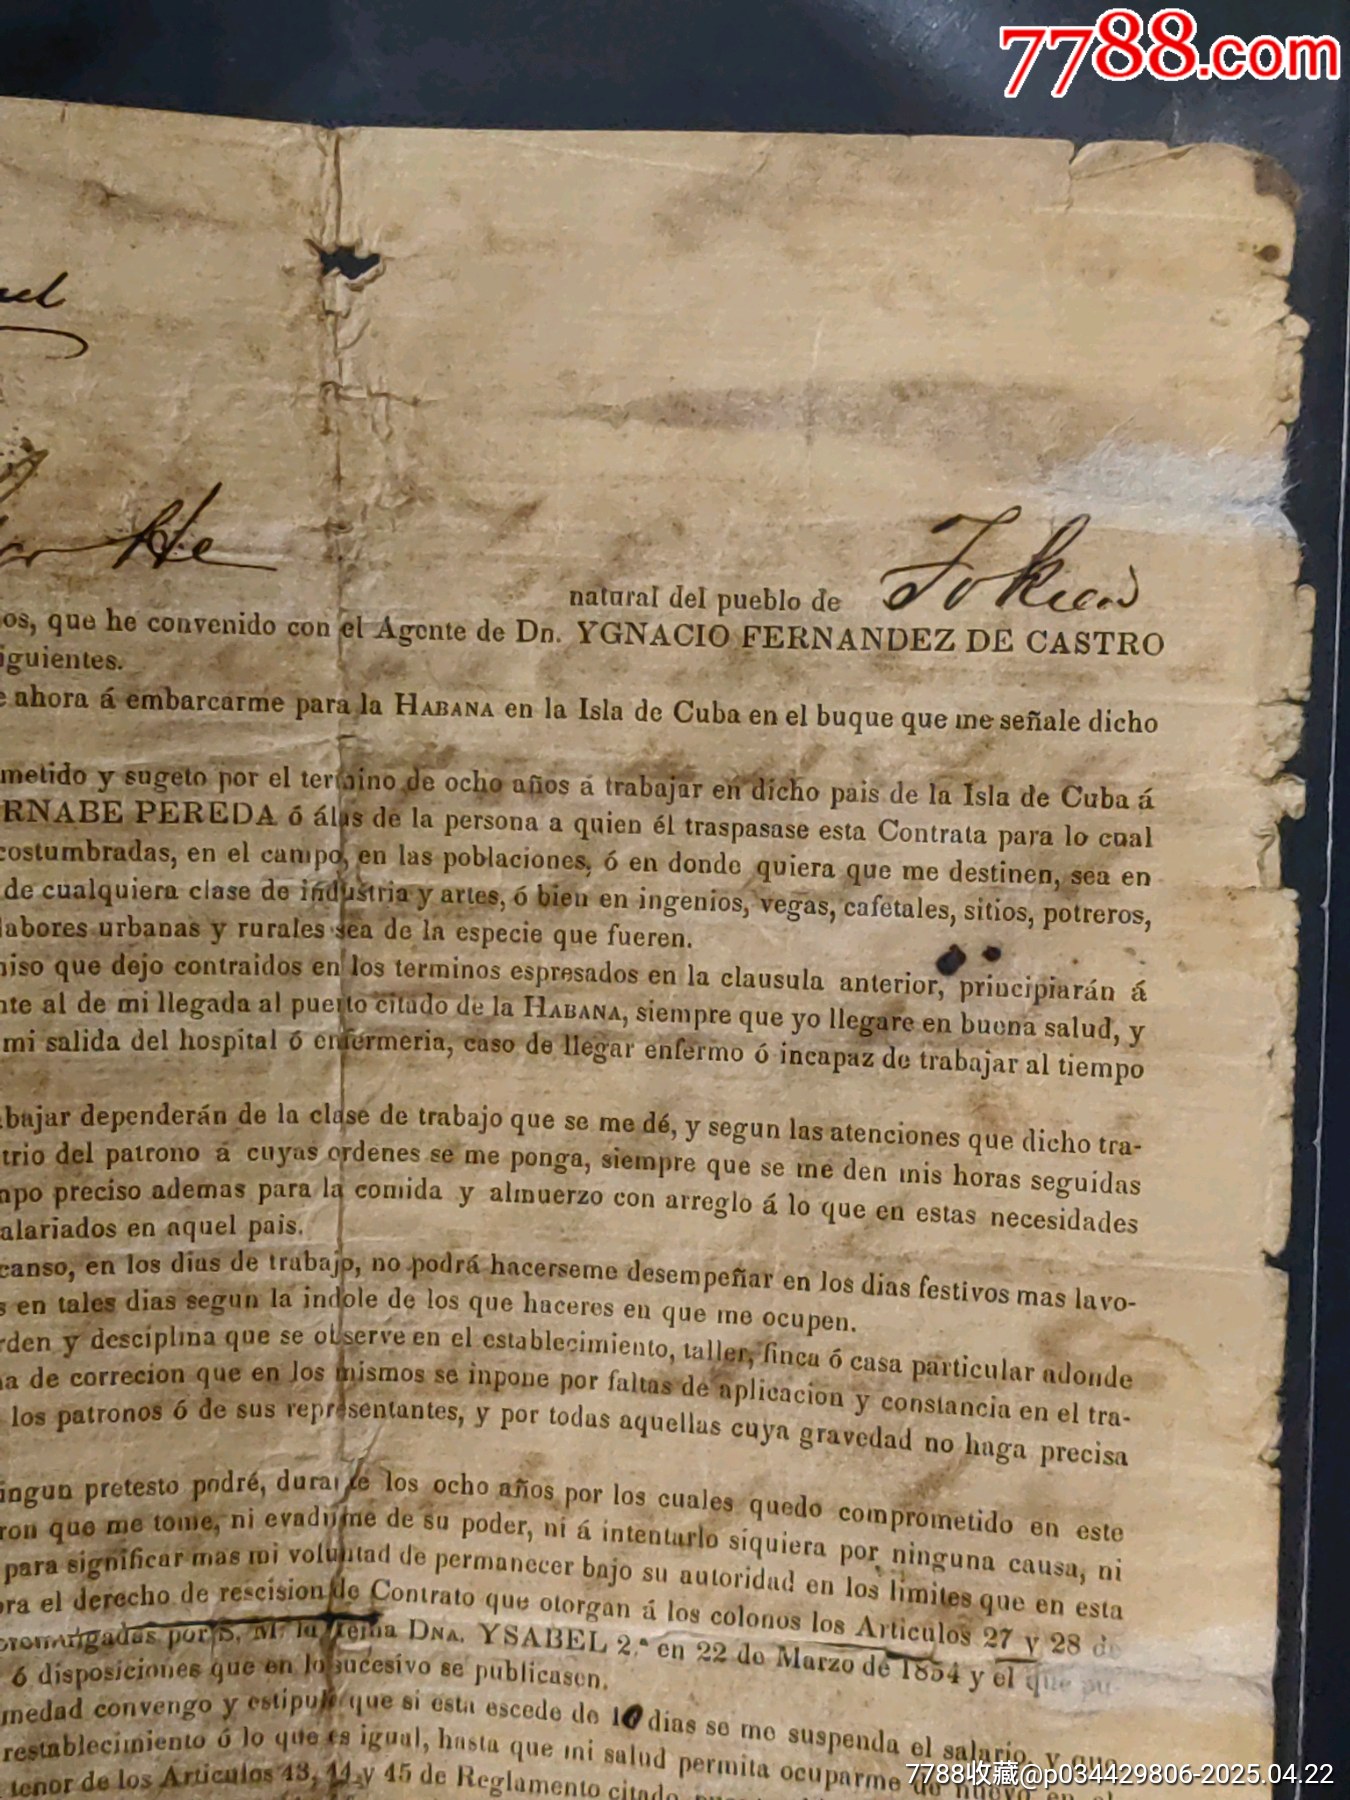 7788.com
He
natural del pueblo de Fokien
os, que he convenido con el Agente de Dn. YGNACIO FERNANDEZ DE CASTRO
iguientes.
e ahora á embarcarme para la HABANA en la Isla de Cuba en el buque que me señale dicho
metido y sugeto por el termino de ocho años á trabajar en dicho pais de la Isla de Cuba á
RNABE PEREDA ó álas de la persona a quien él traspasase esta Contrata para lo cual
costumbradas, en el campo, en las poblaciones, ó en donde quiera que me destinen, sea en
de cualquiera clase de industria y artes, ó bien en ingenios, vegas, cafetales, sitios, potreros,
labores urbanas y rurales sea de la especie que fueren.
niso que dejo contraidos en los terminos espresados en la clausula anterior, principiarán á
nte al de mi llegada al puerto citado de la HABANA, siempre que yo llegare en buena salud, y
mi salida del hospital ó enfermeria, caso de llegar enfermo ó incapaz de trabajar al tiempo
abajar dependerán de la clase de trabajo que se me dé, y segun las atenciones que dicho tra-
trio del patrono á cuyas ordenes se me ponga, siempre que se me den mis horas seguidas
mpo preciso ademas para la comida y almuerzo con arreglo á lo que en estas necesidades
alariados en aquel pais.
canso, en los dias de trabajo, no podrá hacerseme desempeñar en los dias festivos mas lavo-
s en tales dias segun la indole de los que haceres en que me ocupen.
rden y desciplina que se observe en el establecimiento, taller, finca ó casa particular adonde
na de correcion que en los mismos se inpone por faltas de aplicacion y constancia en el tra-
los patronos ó de sus representantes, y por todas aquellas cuya gravedad no haga precisa
ingun pretesto podré, durante los ocho años por los cuales quedo comprometido en este
ron que me tome, ni evadirme de su poder, ni á intentarlo siquiera por ninguna causa, ni
para significar mas mi voluntad de permanecer bajo su autoridad en los limites que en esta
ora el derecho de rescision de Contrato que otorgan á los colonos los Articulos 27 y 28 de
promulgadas por S. M. la reina DNA. YSABEL 2.ª en 22 de Marzo de 1854 y el que pu-
ó disposiciones que en lo sucesivo se publicasen.
medad convengo y estipulo que si esta escede de 10 dias se me suspenda el salario, y que
restablecimiento ó lo que es igual, hasta que mi salud permita ocuparme de nuevo en el
tenor de los Articulos 43, 44 y 45 de Reglamento citado
7788收藏@p034429806-2025.04.22